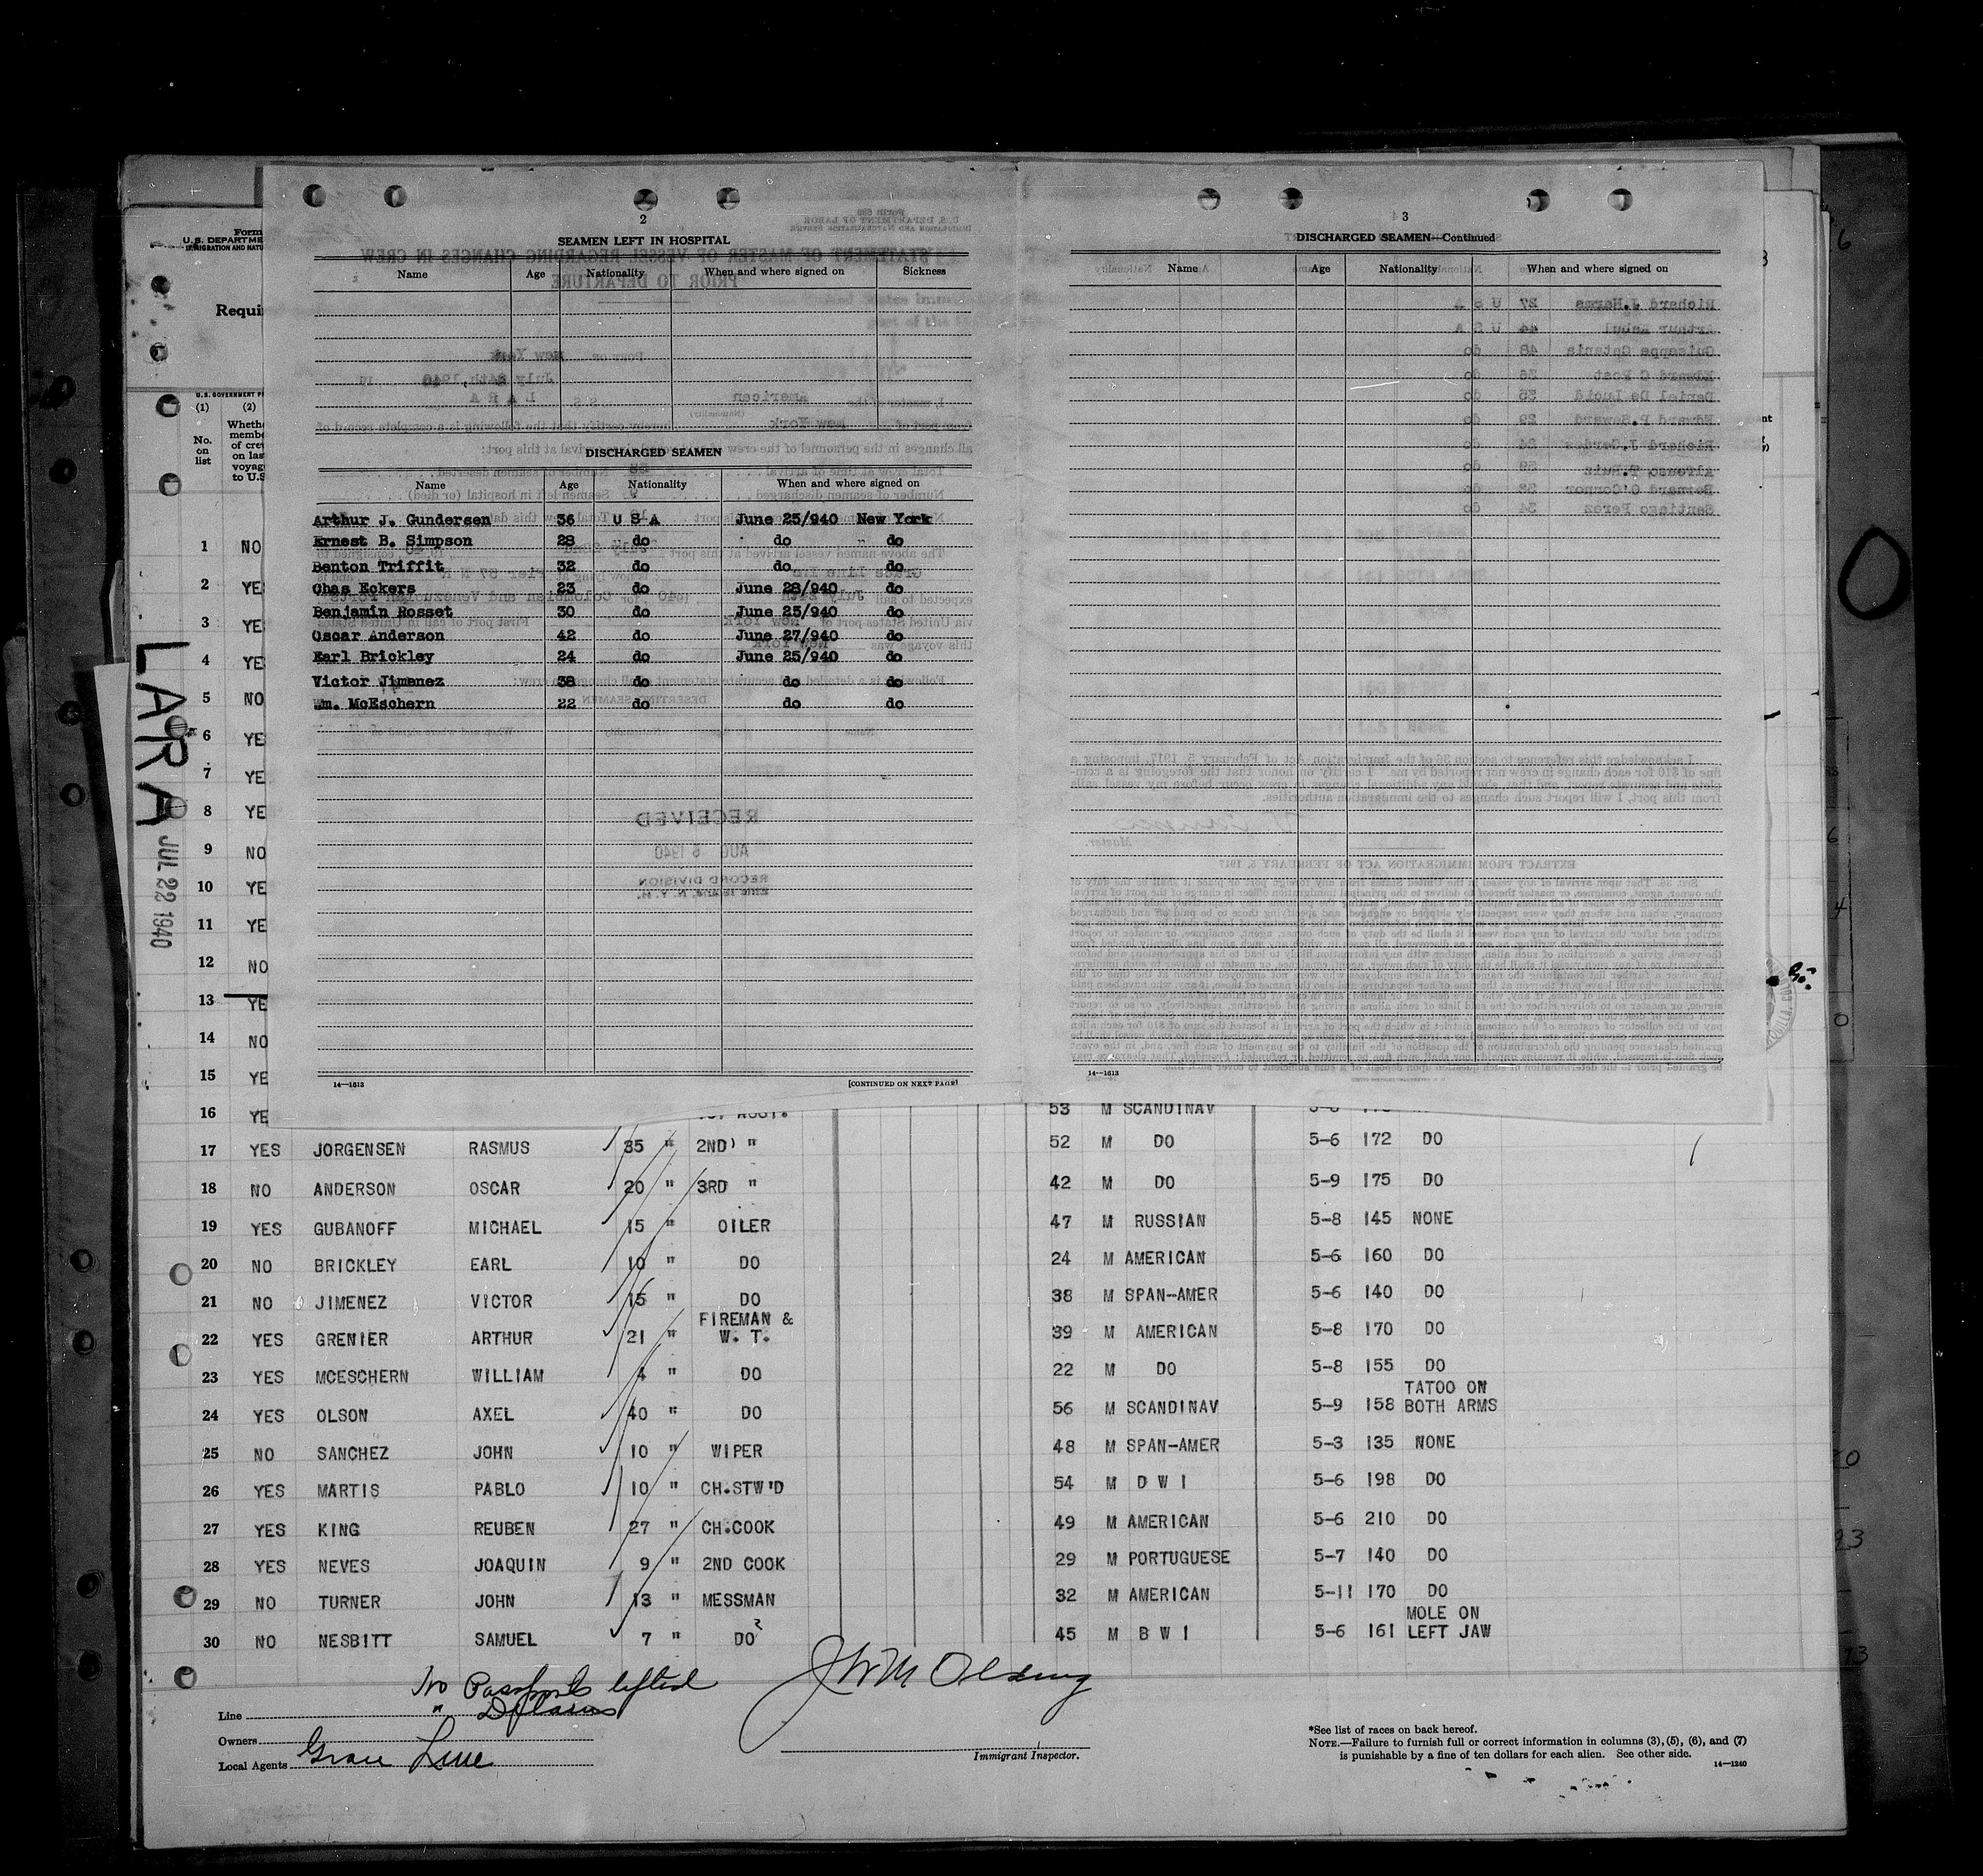 2
SEAMEN LEFT IN HOSPITAL
Name Age Nationality When and where signed on Sickness
DISCHARGED SEAMEN
Name Age Nationality When and where signed on
Arthur J. Gundersen 36 U S A June 25/940 New York
Ernest B. Simpson 28 do do do
Benton Triffit 32 do do do
Chas Eckers 23 do June 28/940 do
Benjamin Rosset 30 do June 25/940 do
Oscar Anderson 42 do June 27/940 do
Earl Brickley 24 do June 25/940 do
Victor Jimenez 38 do do do
Wm. McEschern 22 do do do
14—1613 [CONTINUED ON NEXT PAGE]
3
DISCHARGED SEAMEN—Continued
Name Age Nationality When and where signed on
14—1613
Form
U.S. DEPARTME
IMMIGRATION AND NATU
Requi
U.S. GOVERNMENT P
(1) (2)
No. on list
Wheth
memb
of cre
on las
voyag
to U.S
LARA
JUL 22 1940
1 NO
2 YE
3 YE
4 YE
5 NO
6 YE
7 YE
8 YE
9 NO
10 YE
11 YE
12 NO
13 YE
14 NO
15 YE
16 YE 53 M SCANDINAV
17 YES JORGENSEN RASMUS 35 " 2ND " 52 M DO 5-6 172 DO
18 NO ANDERSON OSCAR 20 " 3RD " 42 M DO 5-9 175 DO
19 YES GUBANOFF MICHAEL 15 " OILER 47 M RUSSIAN 5-8 145 NONE
20 NO BRICKLEY EARL 10 " DO 24 M AMERICAN 5-6 160 DO
21 NO JIMENEZ VICTOR 15 " DO 38 M SPAN-AMER 5-6 140 DO
22 YES GRENIER ARTHUR 21 " FIREMAN & W. T. 39 M AMERICAN 5-8 170 DO
23 YES MCESCHERN WILLIAM 4 " DO 22 M DO 5-8 155 DO
24 YES OLSON AXEL 40 " DO 56 M SCANDINAV 5-9 158 TATOO ON BOTH ARMS
25 NO SANCHEZ JOHN 10 " WIPER 48 M SPAN-AMER 5-3 135 NONE
26 YES MARTIS PABLO 10 " CH.STW'D 54 M D W I 5-6 198 DO
27 YES KING REUBEN 27 " CH.COOK 49 M AMERICAN 5-6 210 DO
28 YES NEVES JOAQUIN 9 " 2ND COOK 29 M PORTUGUESE 5-7 140 DO
29 NO TURNER JOHN 13 " MESSMAN 32 M AMERICAN 5-11 170 DO
30 NO NESBITT SAMUEL 7 " DO 45 M B W I 5-6 161 MOLE ON LEFT JAW
No Passports lifted
Line "
Owners
Local Agents Grace Line
Immigrant Inspector.
*See list of races on back hereof.
NOTE.—Failure to furnish full or correct information in columns (3), (5), (6), and (7)
is punishable by a fine of ten dollars for each alien. See other side.
14—1240